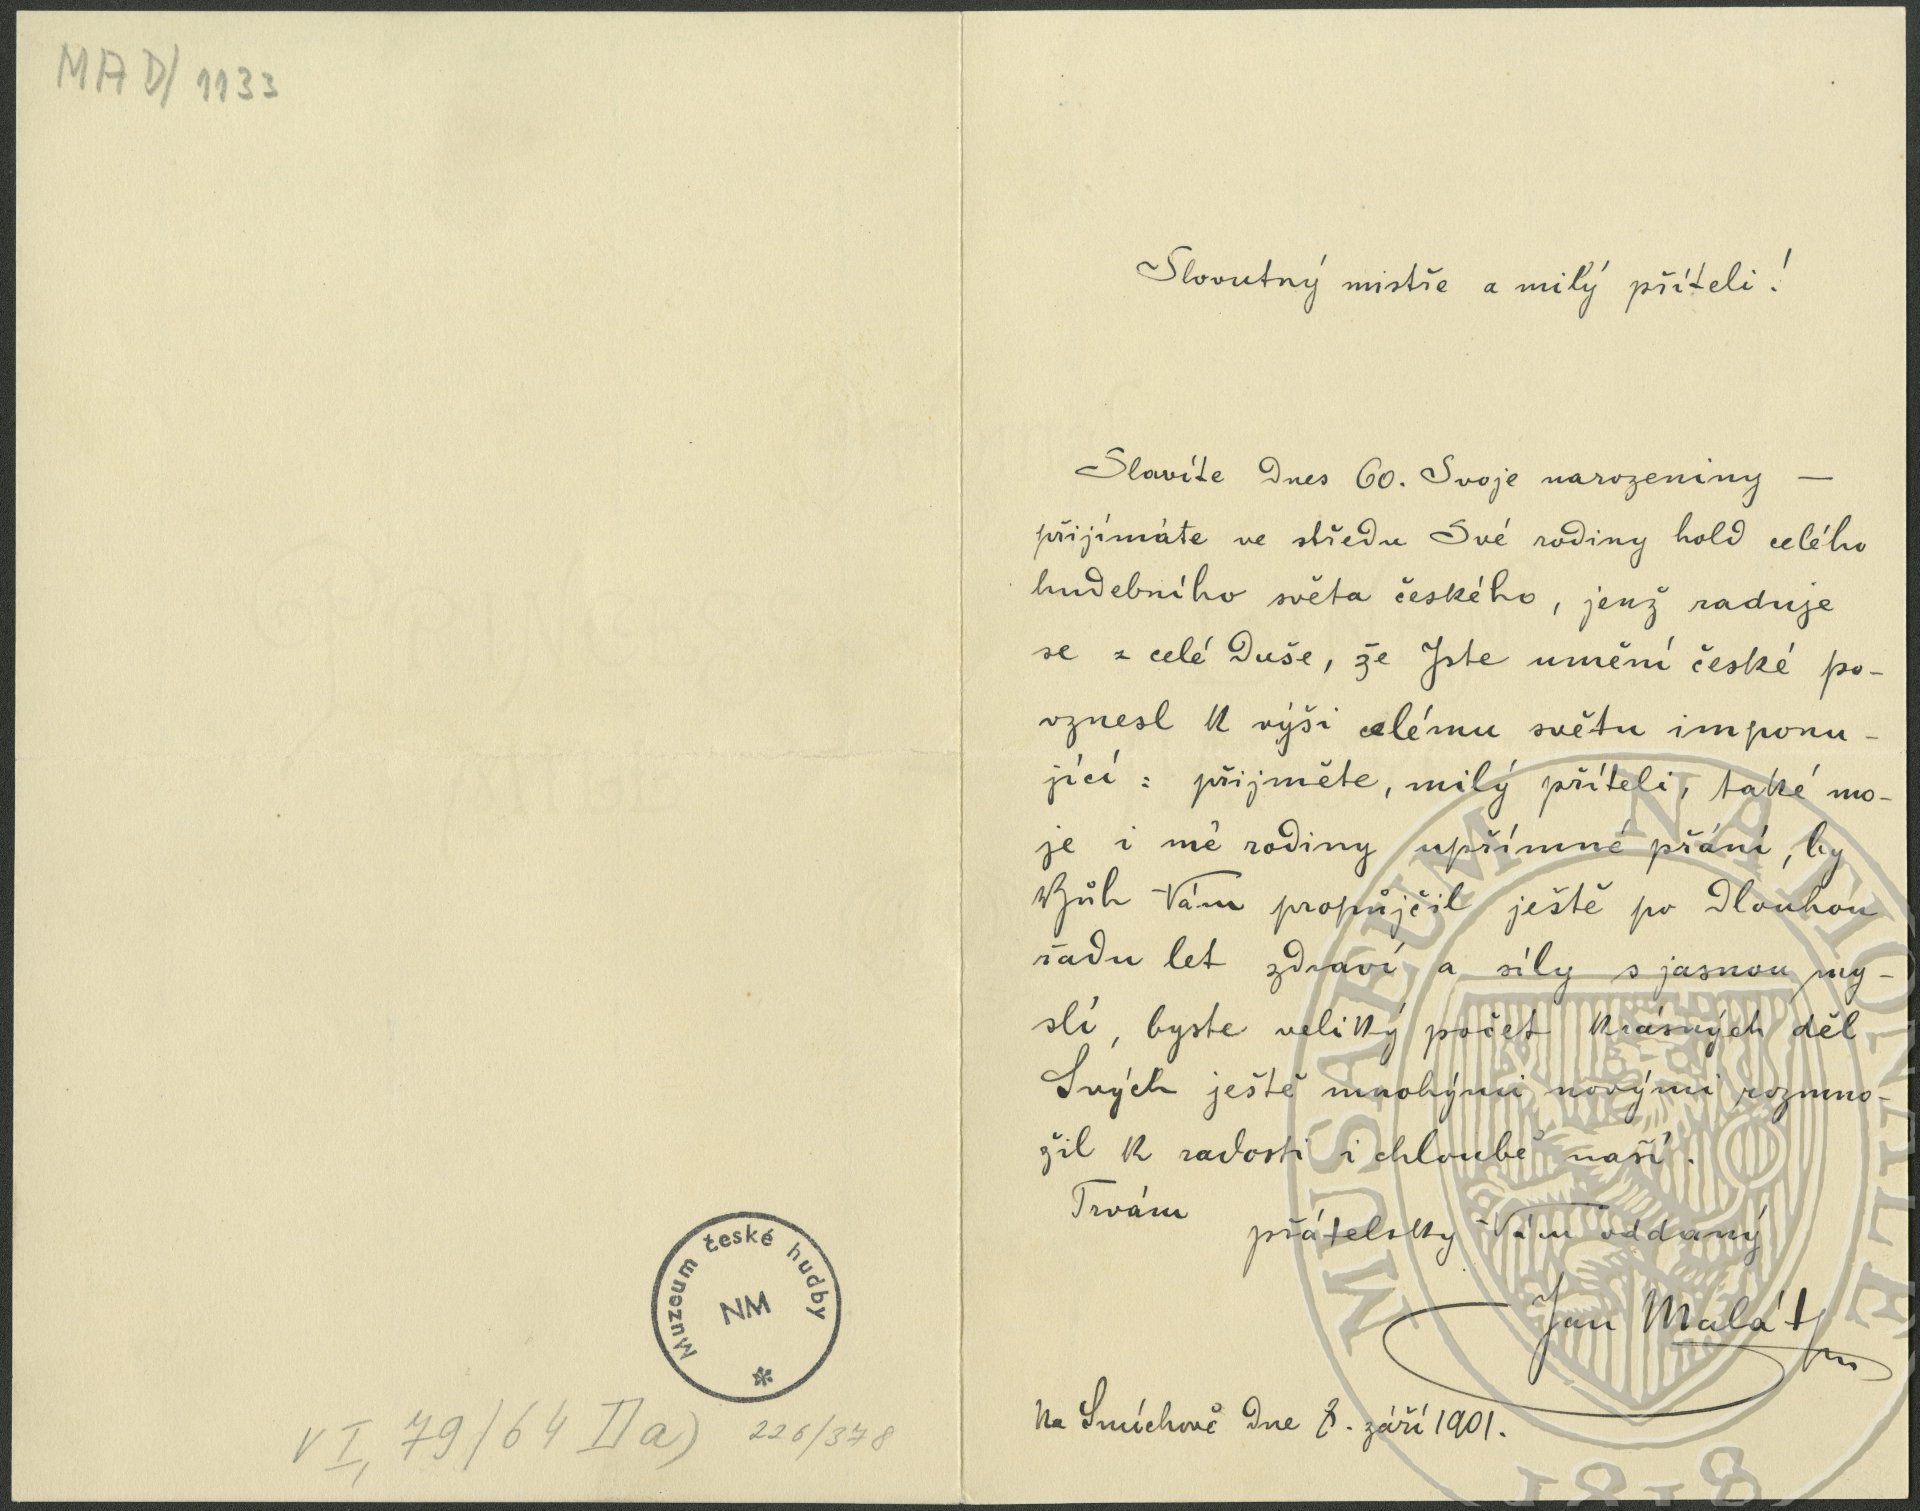 MAD/1133
Slovutný mistře a milý příteli!
Slavíte dnes 60. Svoje narozeniny —
přijímáte ve středu Své rodiny hold celého
hudebního světa českého, jenž raduje
se z celé duše, že Jste umění české po-
vznesl k výši celému světu imponu-
jící: přijměte, milý příteli, také mo-
je i mé rodiny upřímné přání, by
Bůh Vám propůjčil ještě po dlouhou
řadu let zdraví a síly s jasnou my-
slí, byste veliký počet krásných děl
Svých ještě mnohými novými rozmno-
žil k radosti i chloubě naší.
Trvám
přátelsky Vám oddaný
Jan Malát
Na Smíchově dne 8. září 1901.
Muzeum české hudby
NM
VI, 79/64 IIa) 226/378
MUSAEUM NATIONALE
1818